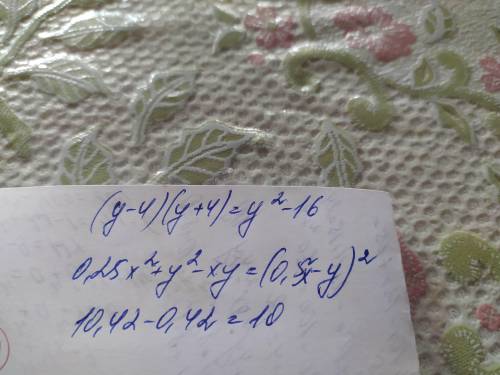 (y-4)(y+4)=y²-16
0,25x²+y²-xy=(0,5x-y)²
10,42-0,42=10